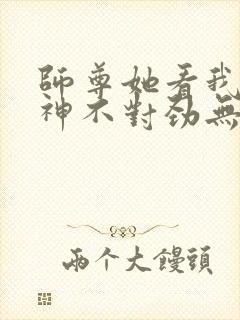 師尊她看我
神不對勁無
兩个大饅頭